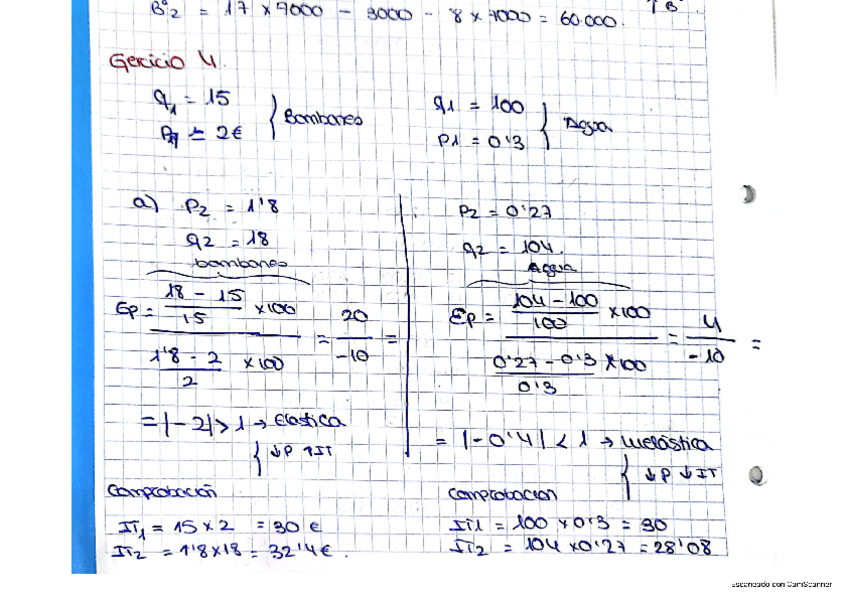 B°2 = 17 × 7000 - 3000 - 8 × 7000 = 60.000.
Gercicio 4.
q1 = 15
P1 = 2€
Bombones
q1 = 100
P1 = 0'3
Agua
a) P2 = 1'8
q2 = 18
bombones
Ep = ((18 - 15)/15 ×100) / ((1'8 - 2)/2 ×100) = 20/-10 =
= |-2| > 1 → Elástica
↓P ↑IT
Comprobación
IT1 = 15 × 2 = 30 €
IT2 = 1'8 × 18 = 32'4€.
P2 = 0'27
q2 = 104.
Agua
Ep = ((104 - 100)/100 ×100) / ((0'27 - 0'3)/0'3 ×100) = 4/-10 =
= |-0'4| < 1 → Inelástica
↓P ↓IT
Comprobacion
IT1 = 100 × 0'3 = 30
IT2 = 104 × 0'27 = 28'08
Escaneado con CamScanner